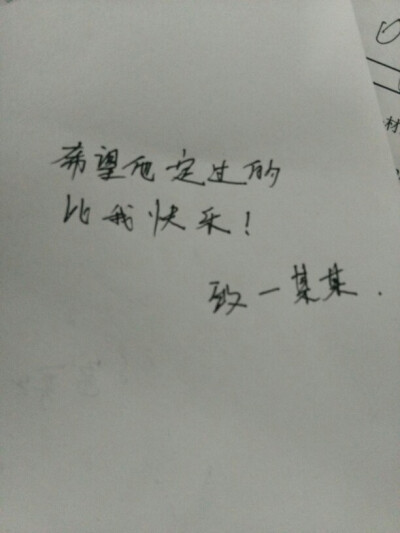 希望他定过的
比我快乐！
致一某某.
材